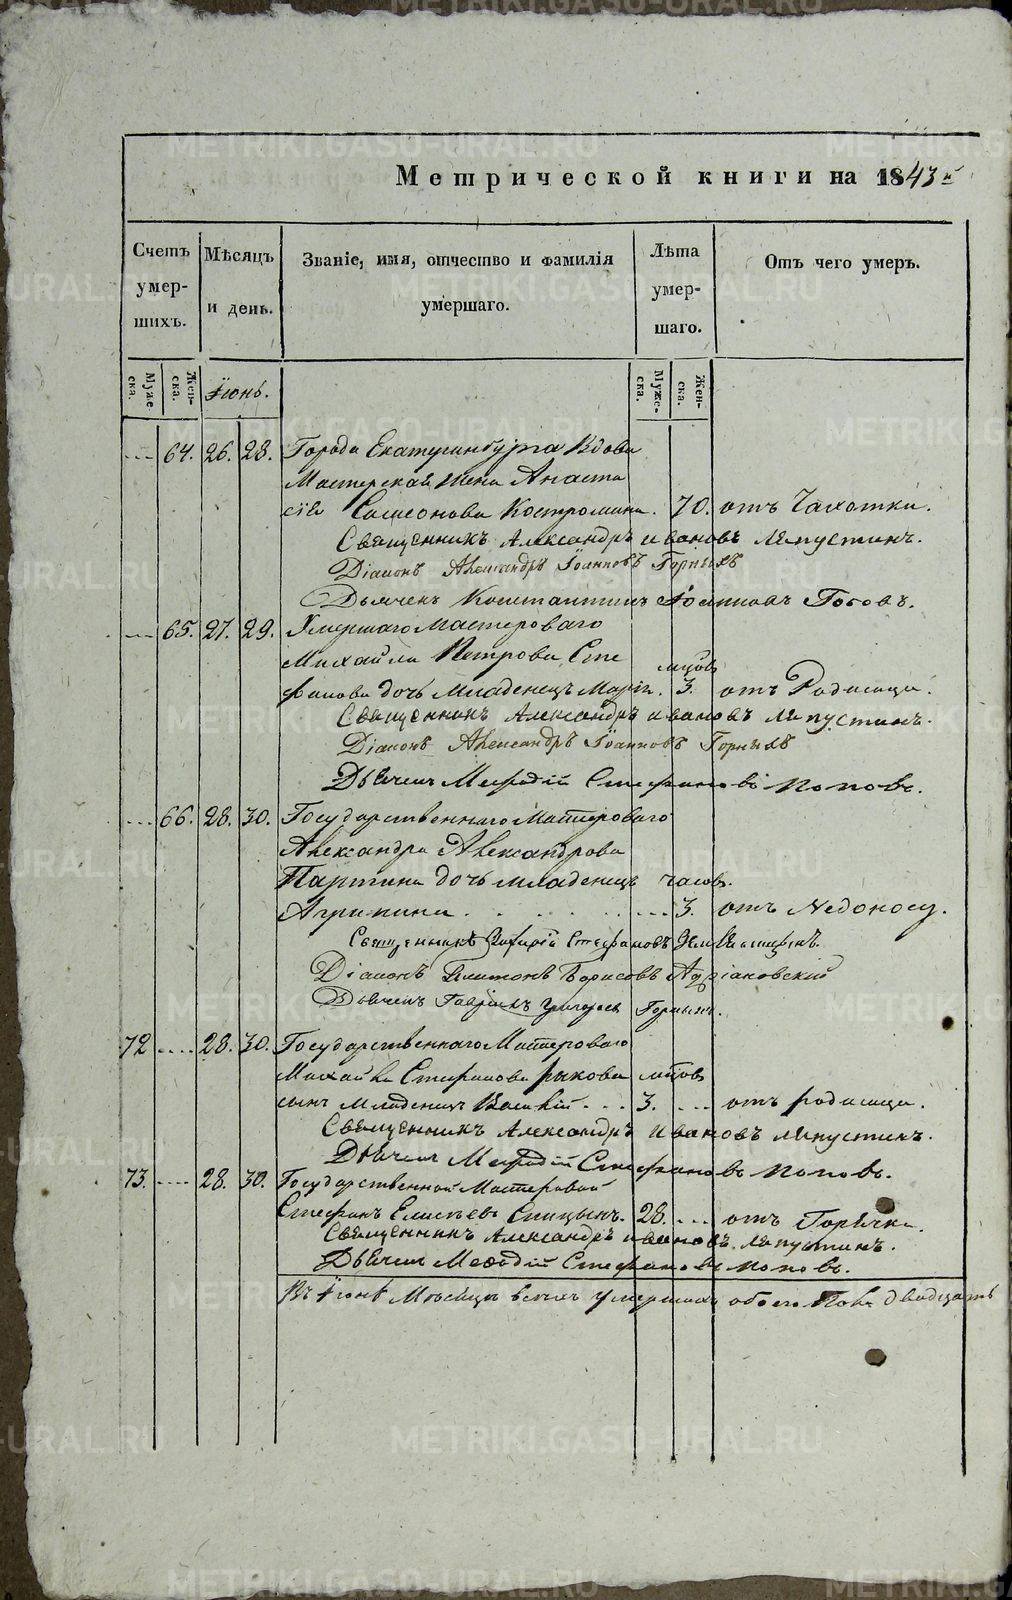 Метрической книги на 1843й
Счетъ умер-шихъ.
Мѣсяцъ и день.
Званіе, имя, отчество и фамилія умершаго.
Лѣта умер-шаго.
Отъ чего умеръ.
Муже ска.
Жен-ска.
Іюнь.
Муже-ска.
Жен-ска.
.... 64. 26. 28. Города Екатеринбурга Вдова
Мастерская жена Анаста
сія Самсонова Костромина. 70. отъ Чахотки.
Священникъ Александръ Ивановъ Ляпустинъ.
Діаконъ Александръ Іоанновъ Горныхъ
Дьячекъ Константинъ Іоанновъ Поповъ.
.... 65. 27. 29. Умершаго Мастероваго
Михайла Петрова Сте мцовъ
фанова дочь младенецъ Марія. 3. отъ Родимица.
Священникъ Александръ Ивановъ Ляпустинъ.
Діаконъ Александръ Іоанновъ Горныхъ
Дьячекъ Мефодій Стефановъ Поповъ.
.... 66. 28. 30. Государственнаго Мастероваго
Александра Александрова
Партина дочь младенецъ часовъ.
Агрипина 3. отъ Недоносу.
Священникъ Стефановъ
Діаконъ Платонъ Борисовъ Адріановскій
Дьячекъ Гавріилъ Григорьевъ Горныхъ.
72 .... 28. 30. Государственнаго Мастероваго
Михайла Стефанова Рыкова мцовъ
сынъ младенецъ Василій 3. отъ родимица.
Священникъ Александръ Ивановъ Ляпустинъ.
Дьячекъ Мефодій Стефановъ Поповъ.
73. .... 28. 30. Государственной Мастеровой
Стефанъ Елисѣевъ Спицынъ. 28. отъ Горячки.
Священникъ Александръ Ивановъ Ляпустинъ.
Дьячекъ Мефодій Стефановъ Поповъ.
Въ Іюнѣ Мѣсяцѣ всѣхъ умершихъ обоего пола двадцать
METRIKI.GASO-URAL.RU